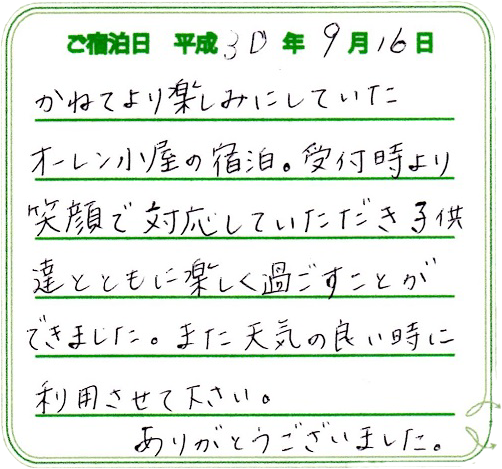 ご宿泊日 平成30年9月16日
かねてより楽しみにしていた
オーレン小屋の宿泊。受付時より
笑顔で対応していただき子供
達とともに楽しく過ごすことが
できました。また天気の良い時に
利用させて下さい。
ありがとうございました。